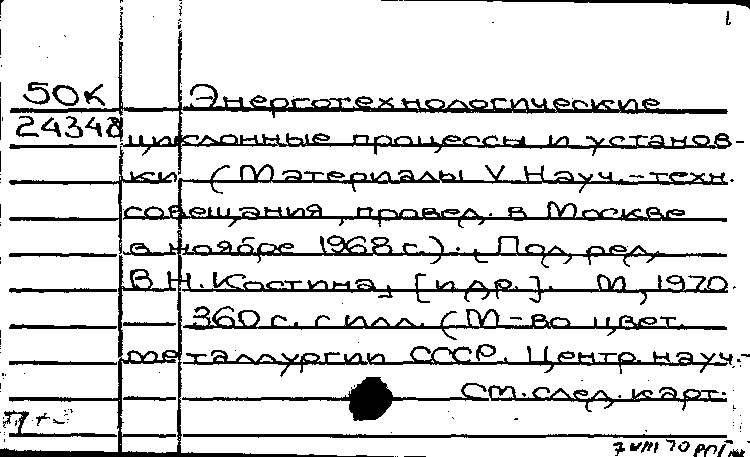 1
50К Энерготехнологические
24348 циклонные процессы и установ-
ки (Материалы V Науч.-техн.
совещания, провед. в Москве
в ноябре 1968 г.). [Под ред.
В.Н. Костина, [и др.]. М., 1970.
360 с. с илл. (М-во цвет.
металлургии СССР. Центр. науч.-
См. след. карт.
7 VIII 70